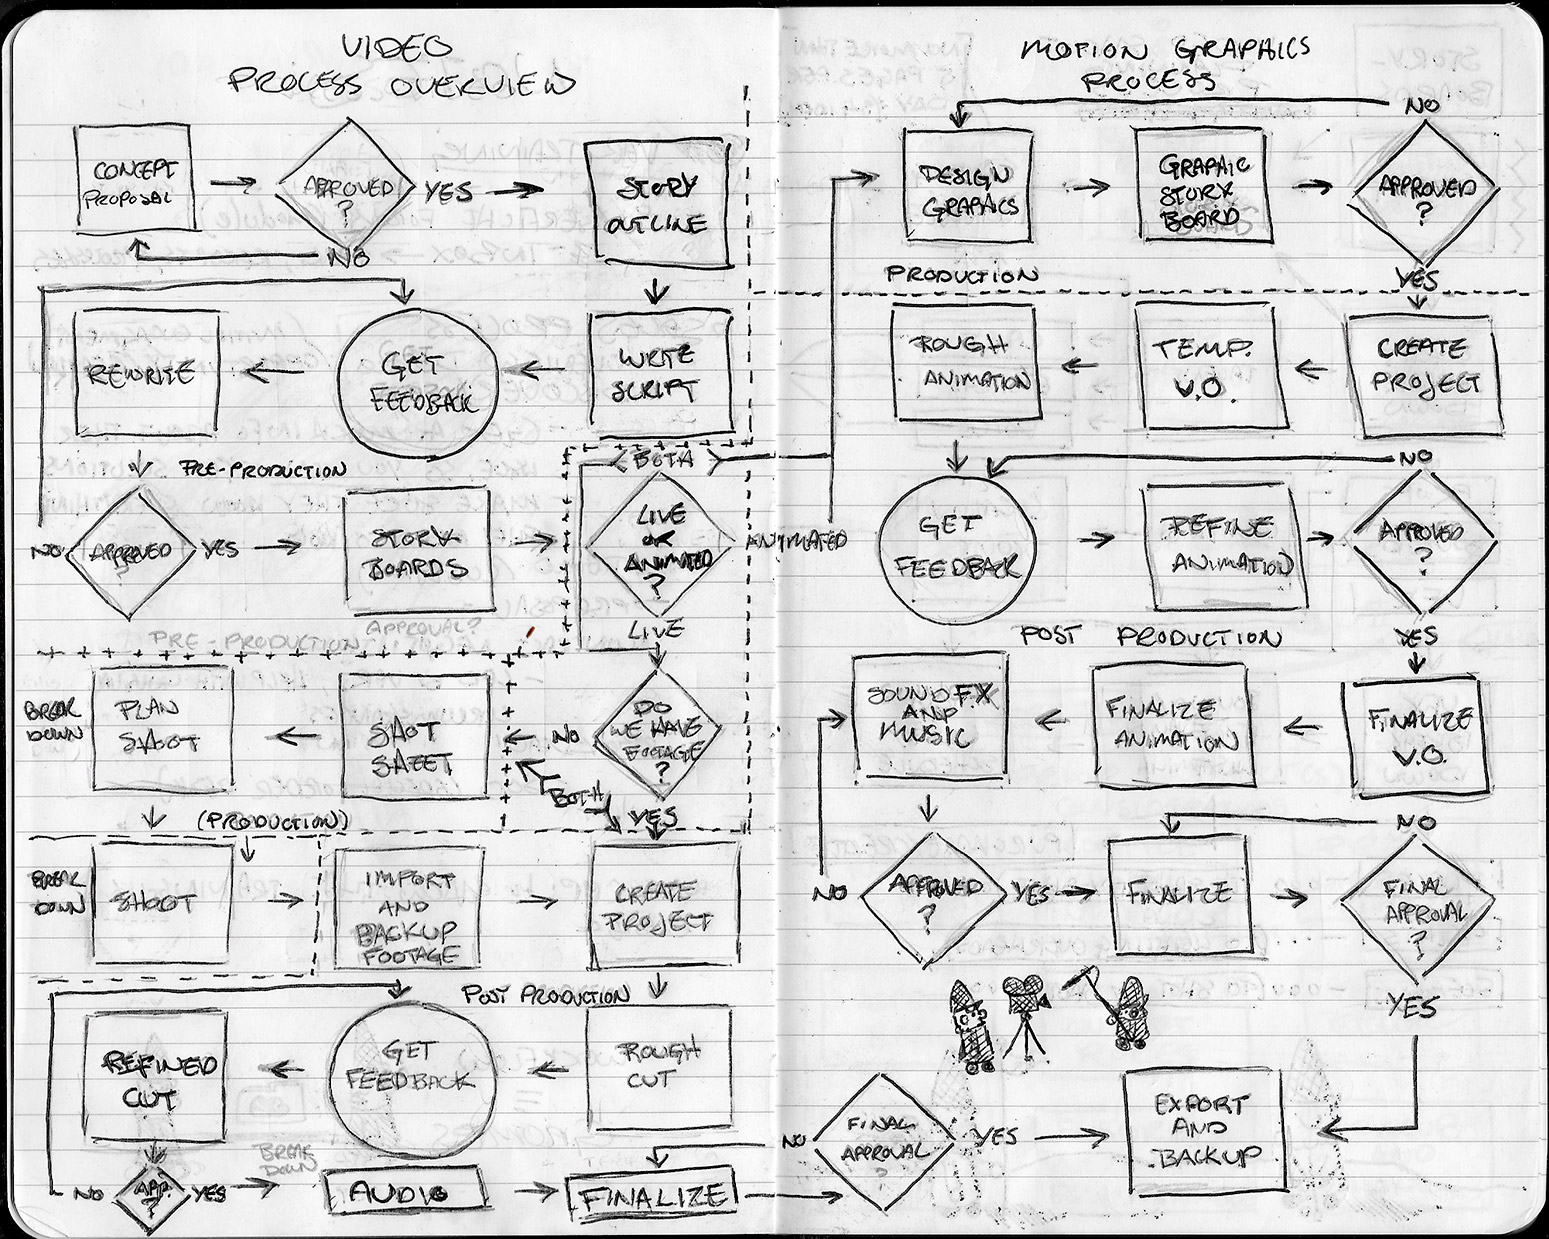 VIDEO
PROCESS OVERVIEW
CONCEPT
PROPOSAL
APPROVED
?
YES
NO
STORY
OUTLINE
REWRITE
GET
FEEDBACK
WRITE
SCRIPT
PRE-PRODUCTION
BOTH
NO
APPROVED
?
YES
STORY
BOARDS
LIVE
OR
ANIMATED
?
ANIMATED
LIVE
APPROVAL?
PRE-PRODUCTION
BREAK
DOWN
PLAN
SHOOT
SHOT
SHEET
NO
DO
WE HAVE
FOOTAGE
?
BOTH
YES
(PRODUCTION)
BREAK
DOWN
SHOOT
IMPORT
AND
BACKUP
FOOTAGE
CREATE
PROJECT
POST PRODUCTION
REFINED
CUT
GET
FEEDBACK
ROUGH
CUT
BREAK
DOWN
NO
APP.
?
YES
AUDIO
FINALIZE
MOTION GRAPHICS
PROCESS
NO
DESIGN
GRAPHICS
GRAPHIC
STORY
BOARD
APPROVED
?
YES
PRODUCTION
ROUGH
ANIMATION
TEMP.
V.O.
CREATE
PROJECT
NO
GET
FEEDBACK
REFINE
ANIMATION
APPROVED
?
YES
POST PRODUCTION
SOUND FX
AND
MUSIC
FINALIZE
ANIMATION
FINALIZE
V.O.
NO
NO
APPROVED
?
YES
FINALIZE
FINAL
APPROVAL
?
YES
NO
FINAL
APPROVAL
?
YES
EXPORT
AND
BACKUP